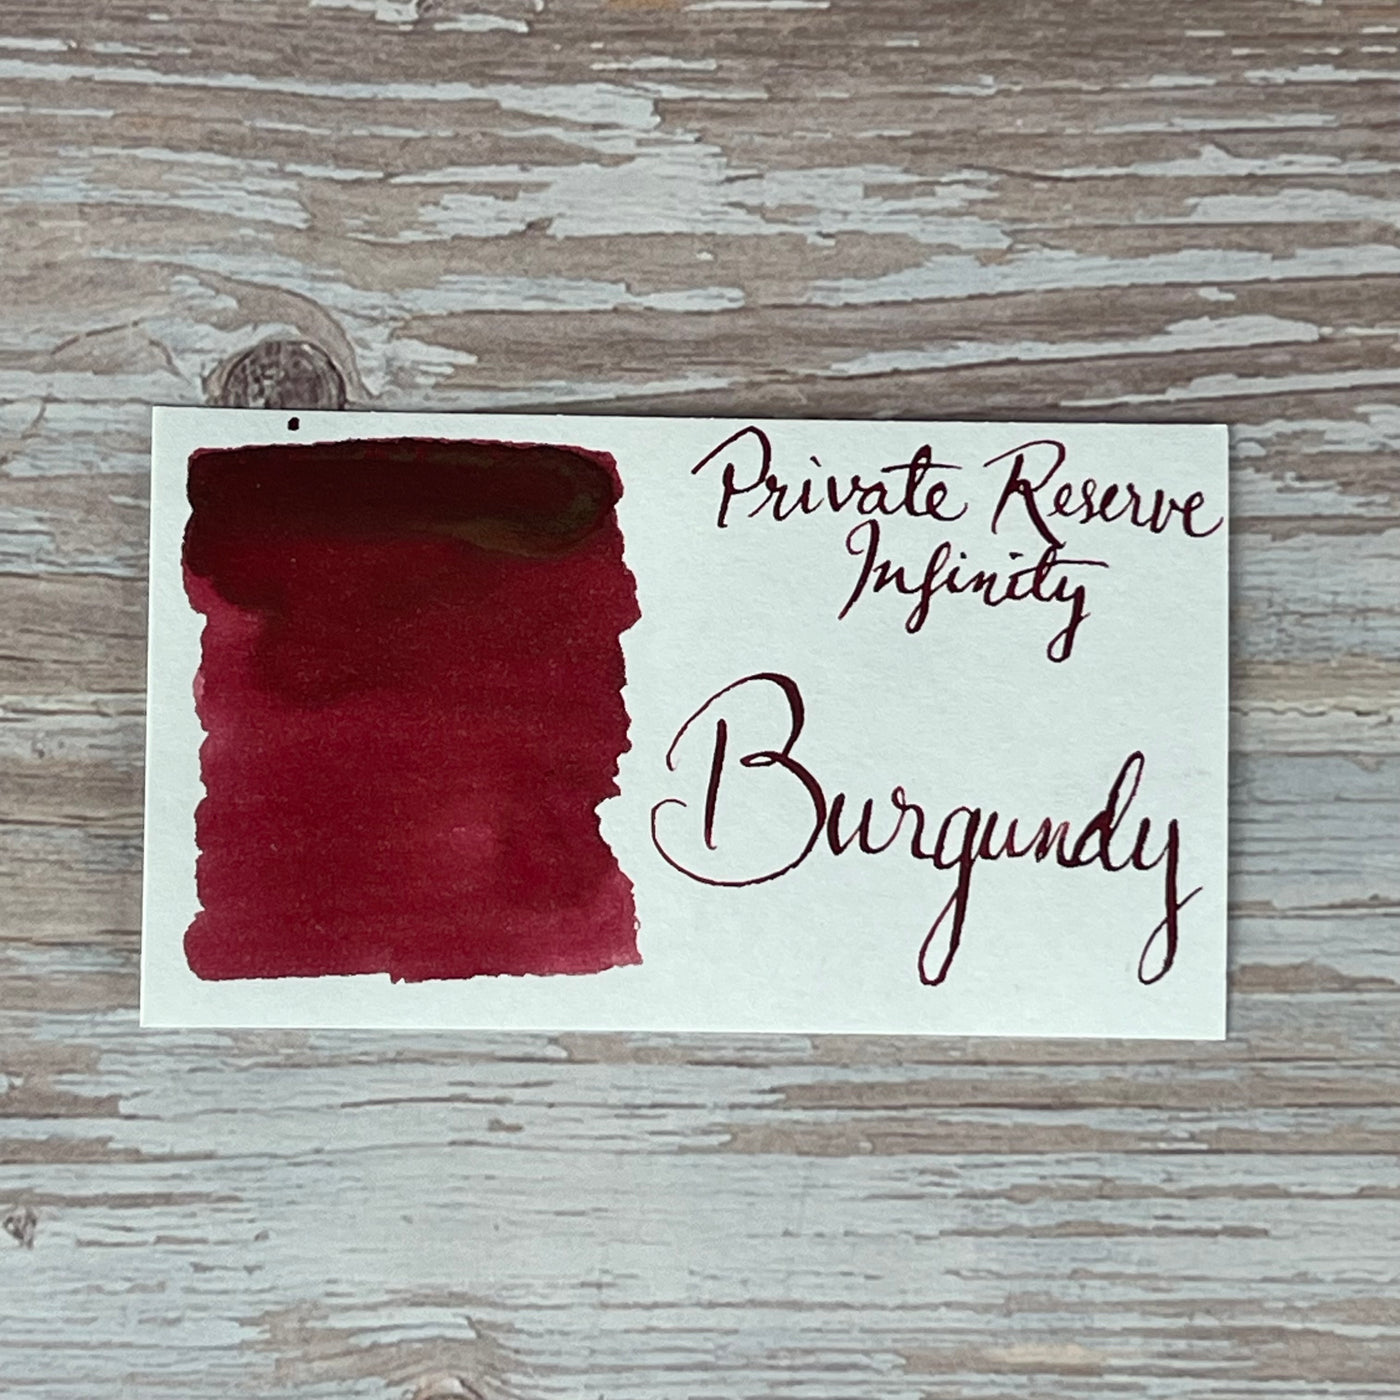 Private Reserve
Infinity
Burgundy